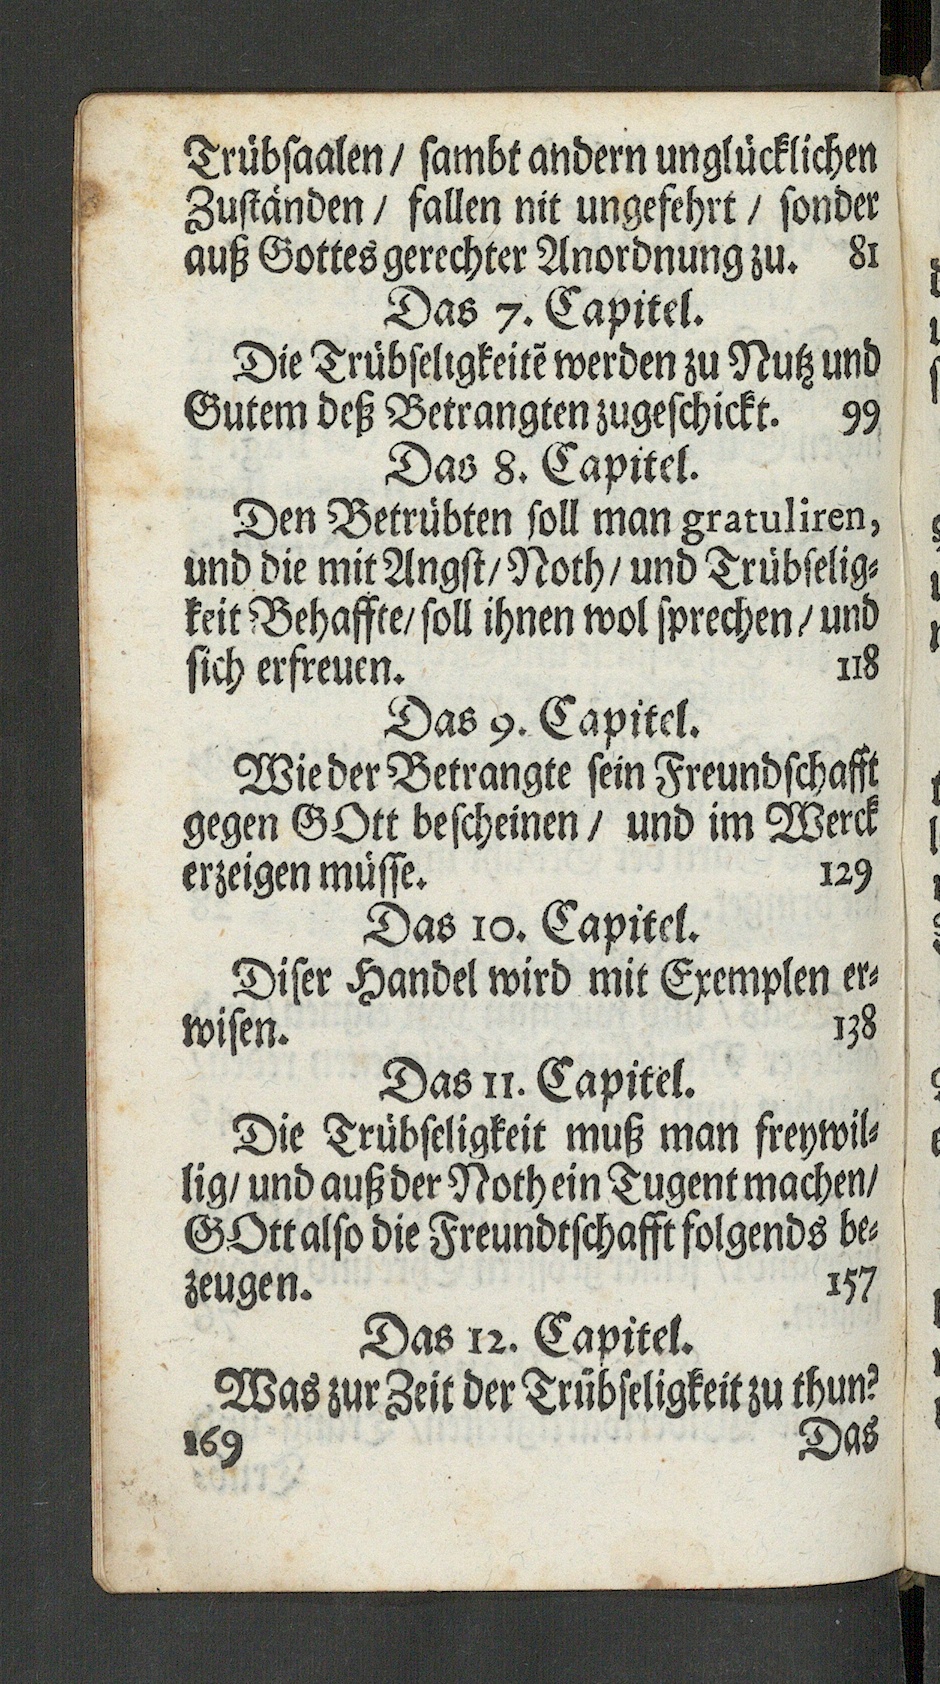 Trübsaalen / sambt andern unglücklichen
Zuständen / fallen nit ungefehrt / sonder
auß Gottes gerechter Anordnung zu. 81
Das 7. Capitel.
Die Trübseligkeitẽ werden zu Nutz und
Gutem deß Betrangten zugeschickt. 99
Das 8. Capitel.
Den Betrübten soll man gratuliren,
und die mit Angst / Noth / und Trübselig-
keit Behaffte / soll ihnen wol sprechen / und
sich erfreuen. 118
Das 9. Capitel.
Wie der Betrangte sein Freundschafft
gegen GOtt bescheinen / und im Werck
erzeigen müsse. 129
Das 10. Capitel.
Diser Handel wird mit Exemplen er-
wisen. 138
Das 11. Capitel.
Die Trübseligkeit muß man freywil-
lig / und auß der Noth ein Tugent machen /
GOtt also die Freundtschafft folgends be-
zeugen. 157
Das 12. Capitel.
Was zur Zeit der Trübseligkeit zu thun?
169 Das